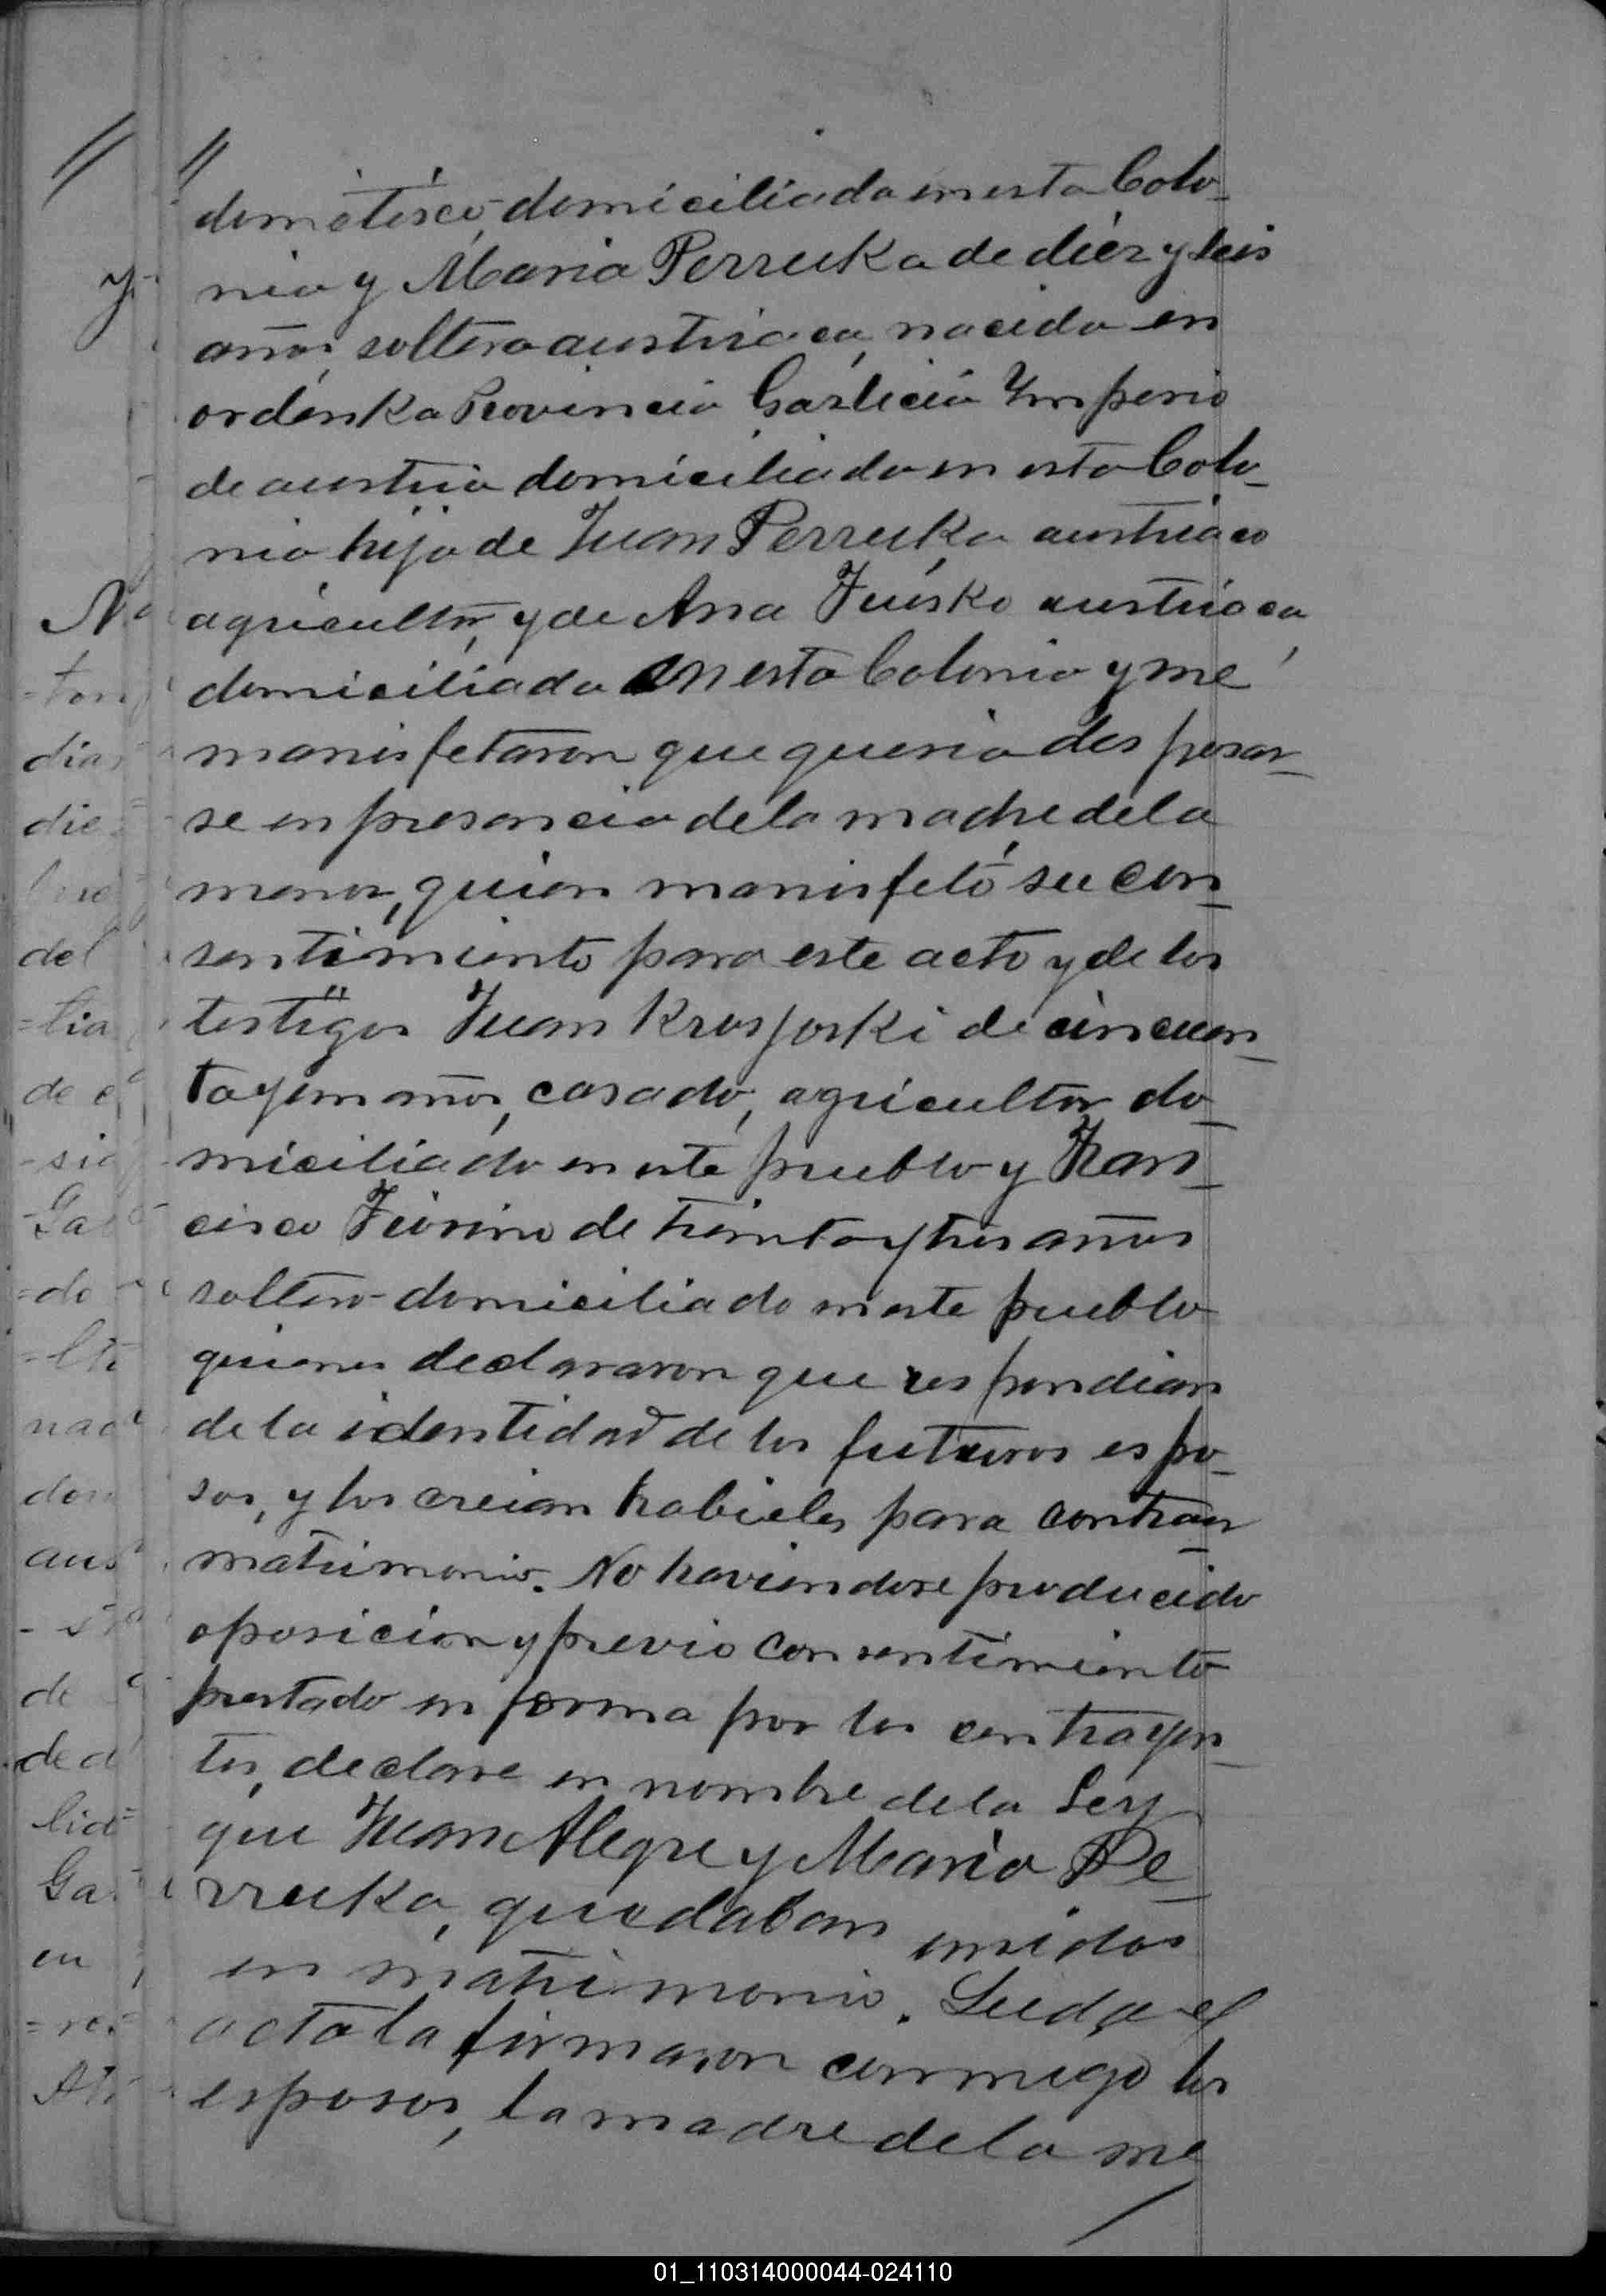 domotisco, domiciliada en esta Colo-
nia y Maria Perruka de diez y seis
años, soltera austriaca, nacida en
ordenka Provincia Gazlicia Imperio
de austria domiciliada en esta Colo-
nia hija de Juan Perruka austriaco
agricultor, y de Ana Juisko austriaca,
domiciliada en esta Colonia y me
manisfetaron que queria des posar-
se en presencia de la madre de la
menor, quien manisfetó su con-
sentimiento para este acto y de los
testigos Juan Krasjoski de cincuen-
ta y un años, casado, agricultor do-
miciliado en este pueblo y Fran-
cisco Fiorino de treinta y tres años
soltero domiciliado en este pueblo
quienes declararon que respondian
de la identidad de los futuros espo-
sos, y los creian habieles para contraer
matrimonio. No haviendose producido
oposicion y previo consentimiento
prestado en forma por los contrayen-
tes, declare en nombre de la Ley
que Juan Alegre y Maria Pe-
rruka, quedaban unidos
en matrimonio. Leida el
acta la firmaron conmigo los
esposos, la madre de la me
N
dias
del
de
Ga
do
nad
aus
de
Ga
en
01_110314000044-024110